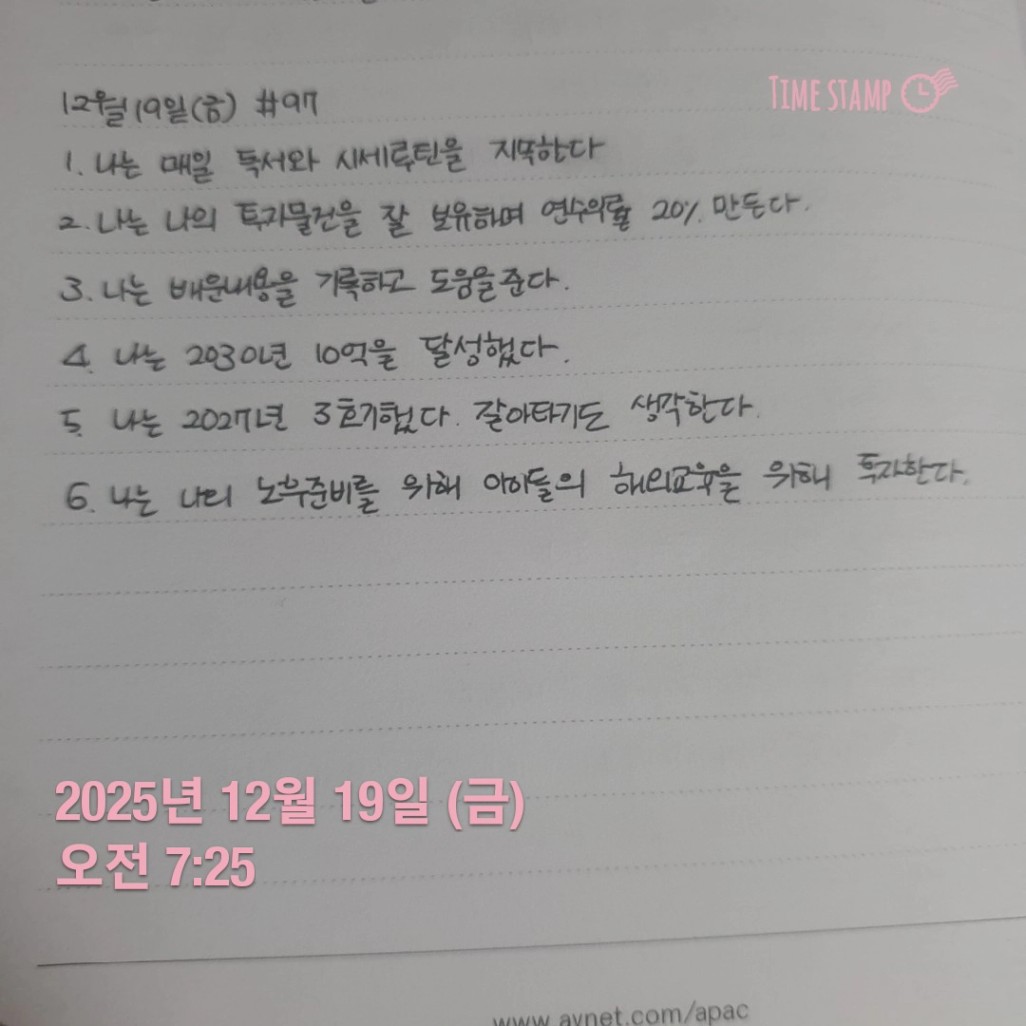 TIME STAMP
12월 19일(금) #97
1. 나는 매일 독서와 시세루틴을 지속한다
2. 나는 나의 투자물건을 잘 보유하며 연수익률 20% 만든다.
3. 나는 배운내용을 기록하고 도움을준다.
4. 나는 2030년 10억을 달성했다.
5. 나는 2027년 3호기했다. 갈아타기도 생각한다.
6. 나는 나의 노후준비를 위해 아이들의 해외교육을 위해 투자한다.
2025년 12월 19일 (금)
오전 7:25
www.avnet.com/apac